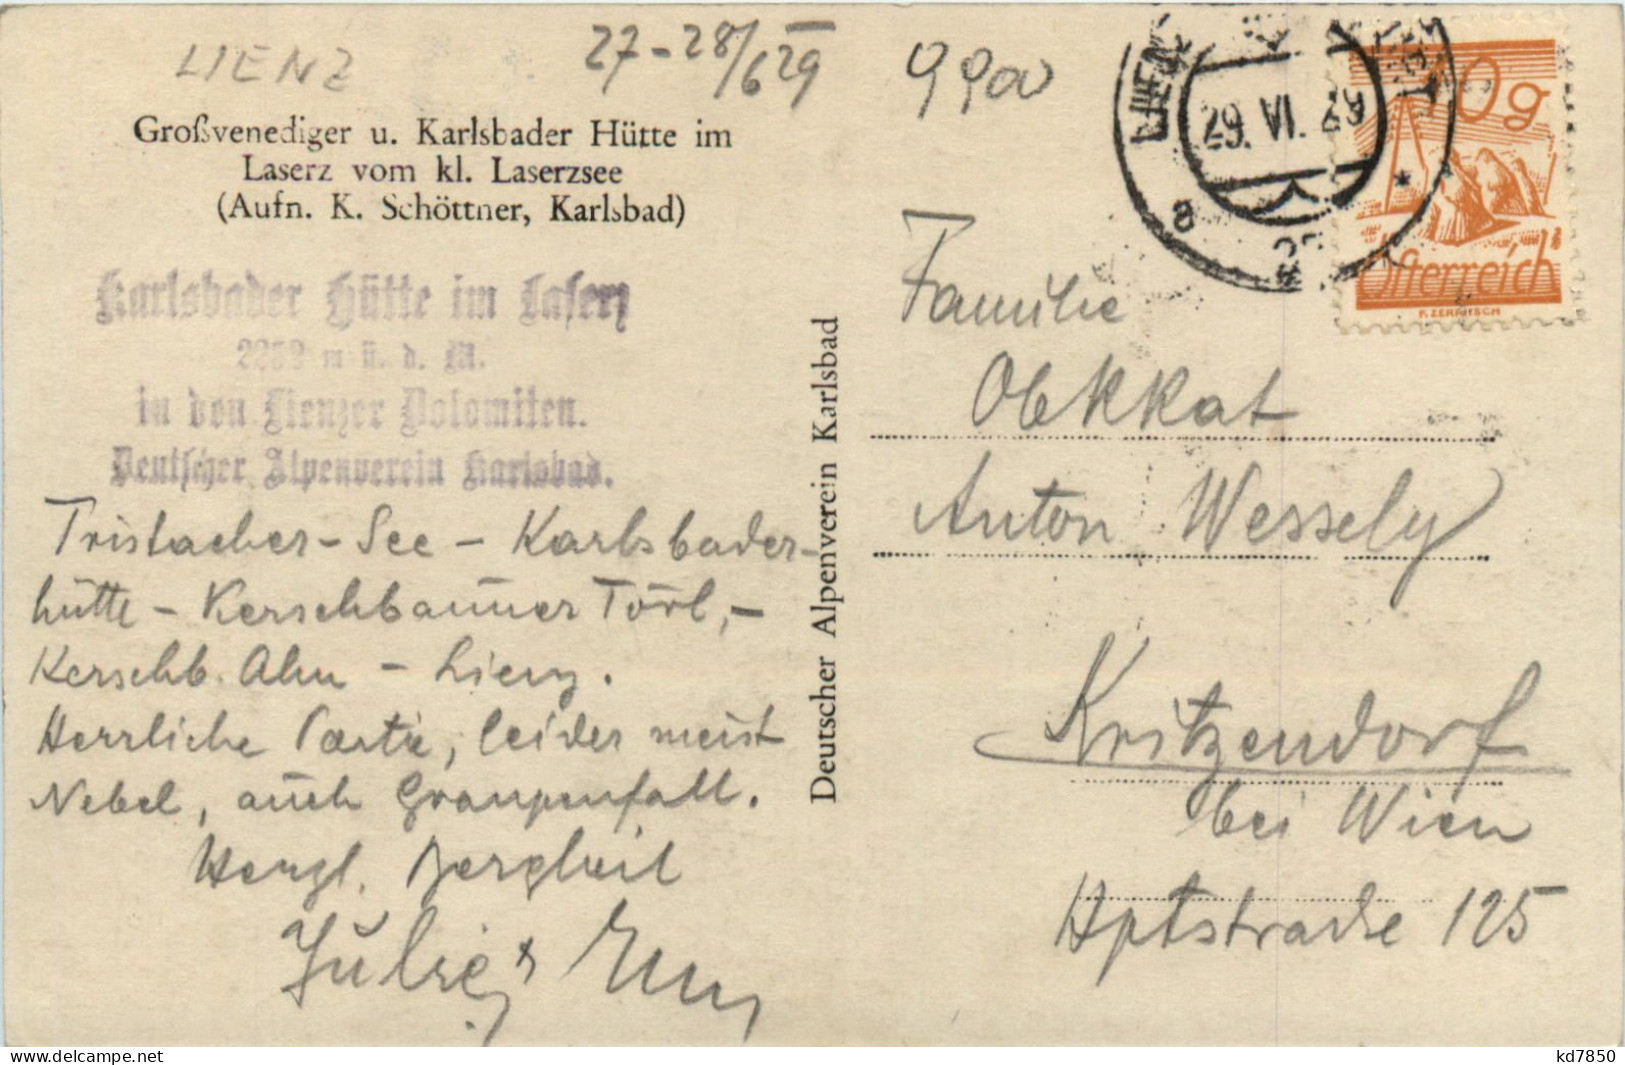 LIENZ
27-28/6 29
9900
Großvenediger u. Karlsbader Hütte im
Laserz vom kl. Laserzsee
(Aufn. K. Schöttner, Karlsbad)
Karlsbader Hütte im Laserz
m ü. d. M.
in den Lienzer Dolomiten.
Deutscher Alpenverein Karlsbad.
Tristacher-See - Karlsbader-
hütte - Kerschbaumer Törl, -
Kerschb. Alm - Lienz.
Herrliche Partie, leider meist
Nebel, auch Graupenfall.
Herzl. Bergheil
Deutscher Alpenverein Karlsbad
LIENZ
29. VI. 29
8
*
0g
Österreich
Familie
Anton Wessely
Kritzendorf
bei Wien
Hptstraße 125
delcampe.net
kd7850